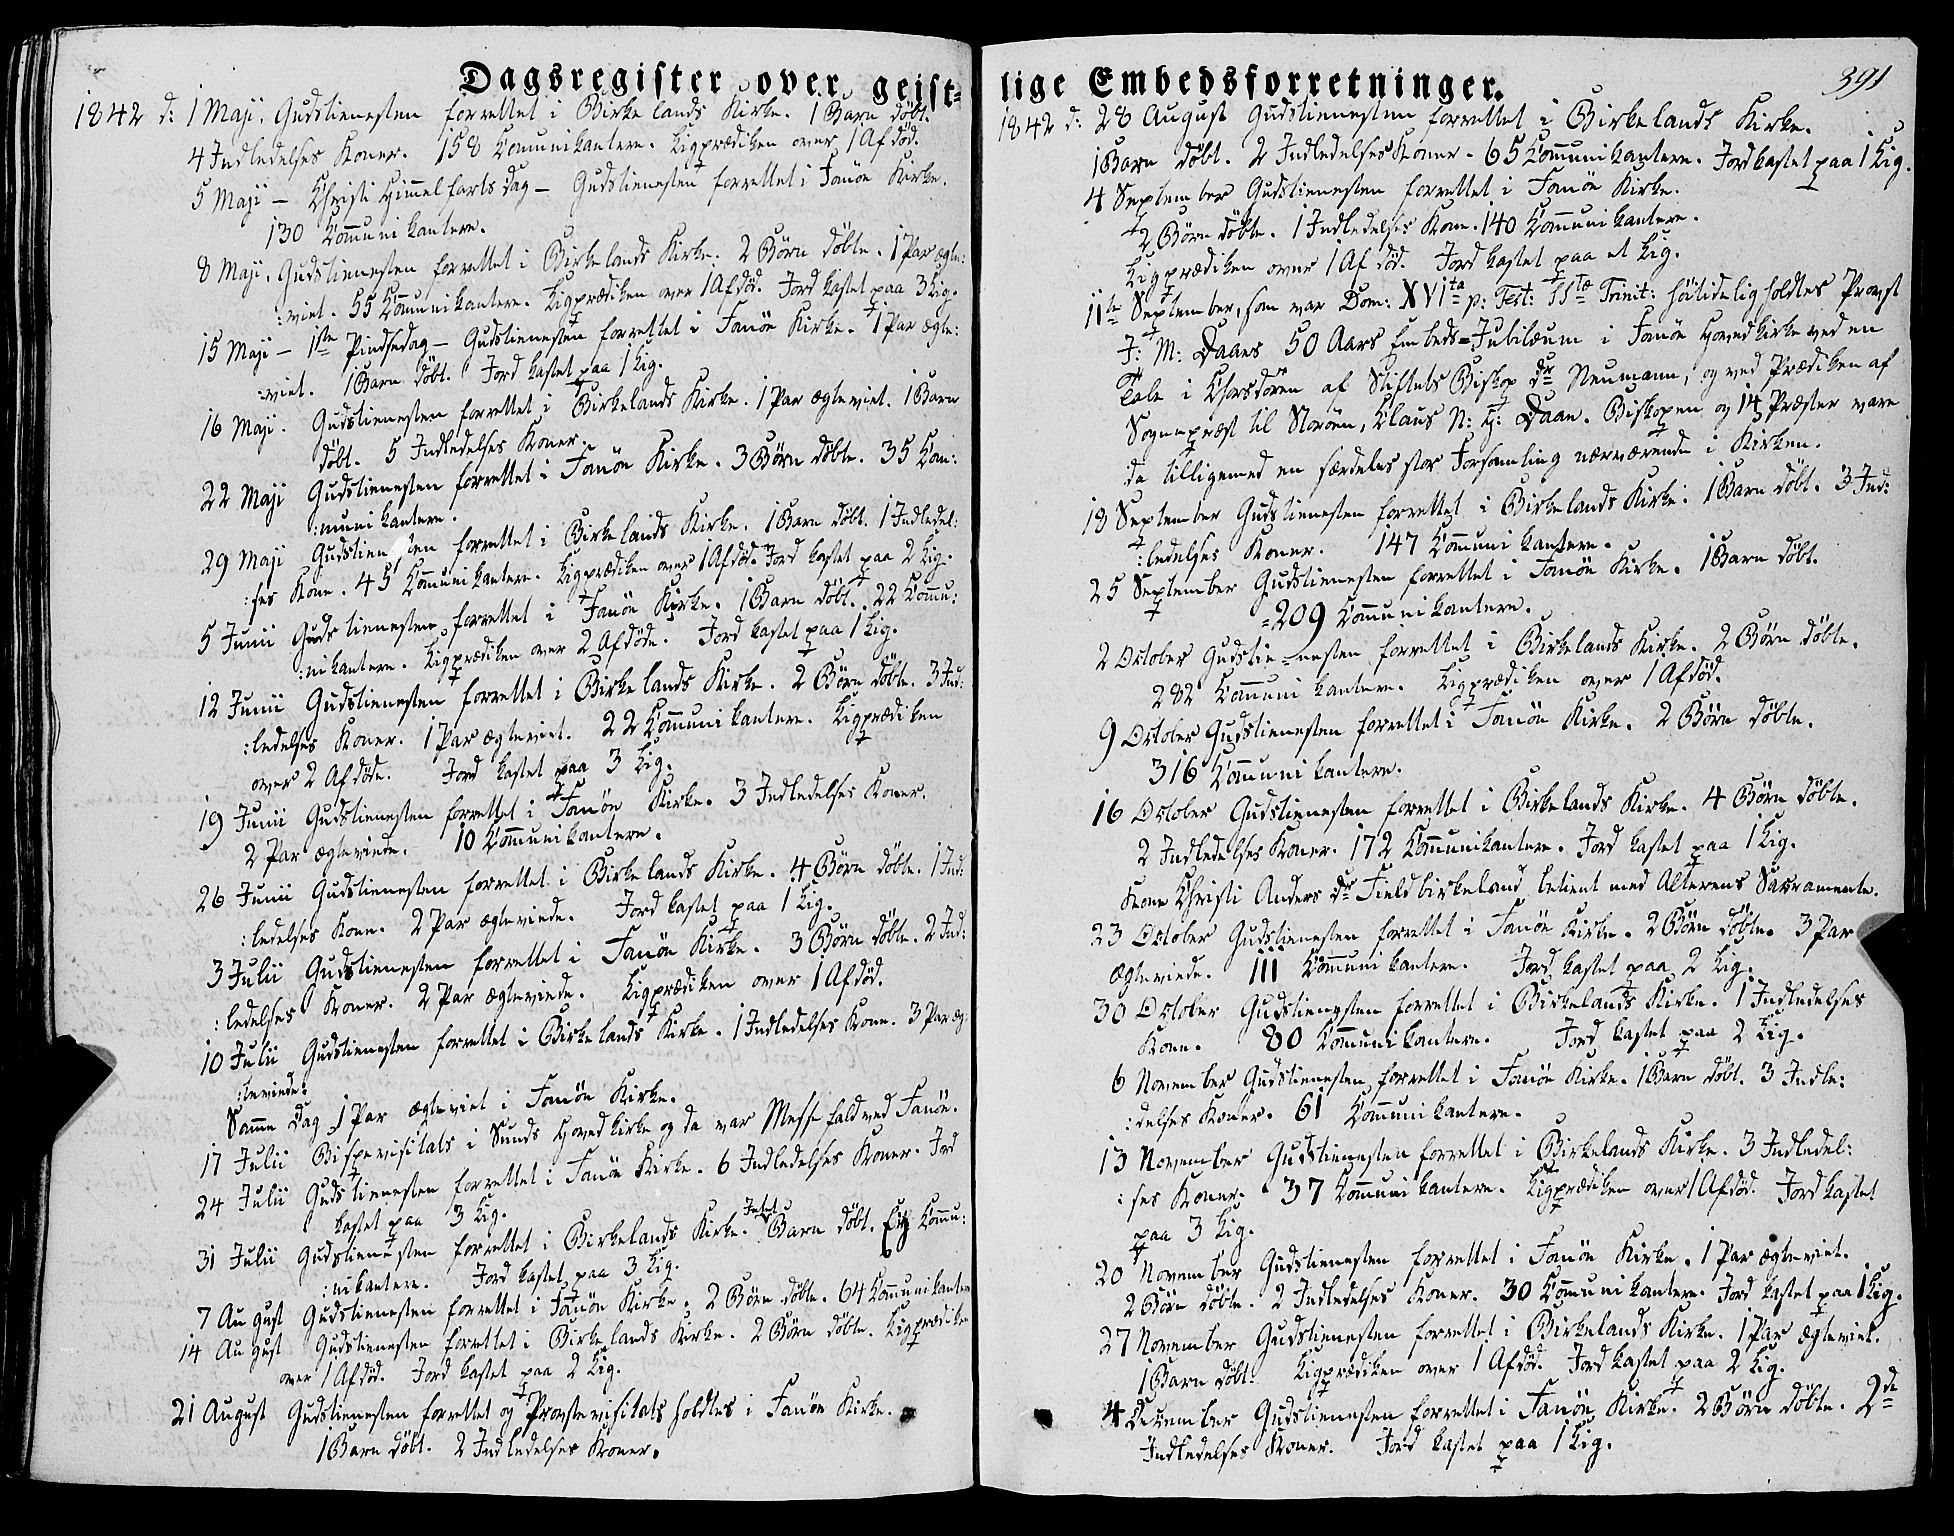 Dagsregister over geist-
1842 d: 1 Maji. Gudstienesten forrettet i Birkelands Kirke. 1 Barn døbt.
4 Indledelses Koner. 158 Communikantere. Ligprædiken over 1 Afdød.
5 Maji – Christi Himmelfarts Dag – Gudstienesten forrettet i Fanøe Kirke.
130 Communikantere.
8 Maji. Gudstienesten forrettet i Birkelands Kirke. 2 Børn døbte. 1 Par ægte:
:viet. 55 Communikantere. Ligprædiken over 1 Afdød. Jord kastet paa 3 Lig.
15 Maji – 1ste Pindsedag – Gudstienesten forrettet i Fanøe Kirke. 1 Par ægte:
:viet. 1 Barn døbt. Jord kastet paa 1 Lig.
16 Maji. Gudstienesten forrettet i Birkelands Kirke. 1 Par ægteviet. 1 Barn
døbt. 5 Indledelses Koner.
22 Maji Gudstienesten forrettet i Fanøe Kirke. 3 Børn døbte. 35 Com:
:munikantere.
29 Maji Gudstienesten forrettet i Birkelands Kirke. 1 Barn døbt. 1 Indledel:
:ses Kone. 45 Communikantere. Ligprædiken over 1 Afdød. Jord kastet paa 2 Lig.
5 Junii Gudstienesten forrettet i Fanøe Kirke. 1 Barn døbt. 22 Commu:
:nikantere. Ligprædiken over 2 Afdøde. Jord kastet paa 1 Lig.
12 Junii Gudstienesten forrettet i Birkelands Kirke. 2 Børn døbte. 3 Ind:
:ledelses Koner. 1 Par ægteviet. 22 Communikantere. Ligprædiken
over 2 Afdøde. Jord kastet paa 3 Lig.
19 Junii Gudstienesten forrettet i Fanøe Kirke. 3 Indledelses Koner.
2 Par ægteviede. 10 Communikantere.
26 Junii Gudstienesten forrettet i Birkelands Kirke. 4 Børn døbte. 1 Ind:
:ledelses Kone. 2 Par ægteviede. Jord kastet paa 1 Lig.
3 Julii Gudstienesten forrettet i Fanøe Kirke. 3 Børn døbte. 2 Ind:
:ledelses Koner. 2 Par ægteviede. Ligprædiken over 1 Afdød.
10 Julii Gudstienesten forrettet i Birkelands Kirke. 1 Indledelses Kone. 3 Par æg:
:teviede.
Samme Dag 1 Par ægteviet i Fanøe Kirke.
17 Julii Bispevisitats i Sunds Hovedkirke og da var Messefald ved Fanøe.
24 Julii Gudstienesten forrettet i Fanøe Kirke. 6 Indledelses Koner. Jord
kastet paa 3 Lig.
31 Julii Gudstienesten forrettet i Birkelands Kirke. Intet Barn døbt. Ey Commu:
:nikantere. Jord kastet paa 3 Lig.
7 August Gudstienesten forrettet i Fanøe Kirke. 2 Børn døbte. 64 Communikantere
14 August Gudstienesten forrettet i Birkelands Kirke. 2 Børn døbte. Ligprædiken
over 1 Afdød. Jord kastet paa 2 Lig.
21 August Gudstienesten forrettet og Provstevisitats holdtes i Fanøe Kirke.
1 Barn døbt. 2 Indledelses Koner.
lige Embedsforretninger. 391
1842 d: 28 August Gudstienesten forrettet i Birkelands Kirke.
1 Barn døbt. 2 Indledelses Koner. 65 Communikantere. Jord kastet paa 1 Lig.
4 September Gudstienesten forrettet i Fanøe Kirke.
2 Børn døbte. 1 Indledelses Kone. 140 Communikantere.
Ligprædiken over 1 Afdød. Jord kastet paa et Lig.
11te September, som var Dom: XVIta p: Fest: SSte Trinit: høitideligholdtes Provst
J: M: Daaes 50 Aars Embeds=Jubilæum i Fanøe Hovedkirke ved en
Tale i Chorsdøren af Stiftets Biskop dr Neumann, og ved Prædiken af
Sognepræst til Storøen, Claus N: H: Daae. Biskopen og 14 Præster vare
da tilligemed en særdeles stor Forsamling nærværende i Kirken.
18 September Gudstienesten forrettet i Birkelands Kirke. 1 Barn døbt. 3 Ind:
:ledelses Koner. 147 Communikantere.
25 September Gudstienesten forrettet i Fanøe Kirke. 1 Barn døbt.
=209 Communikantere.
2 October Gudstie=nesten forrettet i Birkelands Kirke. 2 Børn døbte.
282 Communikantere. Ligprædiken over 1 Afdød.
9 October Gudstienesten forrettet i Fanøe Kirke. 2 Børn døbte.
316 Communikantere.
16 October Gudstienesten forrettet i Birkelands Kirke. 4 Børn døbte.
2 Indledelses Koner. 172 Communikantere. Jord kastet paa 1 Lig.
Kone Christi Anders dr Fieldbirkeland betient med Alterens Sacramente.
23 October Gudstienesten forrettet i Fanøe Kirke. 2 Børn døbte. 3 Par
ægteviede. 111 Communikantere. Jord kastet paa 2 Lig.
30 October Gudstienesten forrettet i Birkelands Kirke. 1 Indledelses
Kone. 80 Communikantere. Jord kastet paa 2 Lig.
6 November Gudstienesten forrettet i Fanøe Kirke. 1 Barn døbt. 3 Indle:
:delses Koner. 61 Communikantere.
13 November Gudstienesten forrettet i Birkelands Kirke. 3 Indledel:
:ses Koner. 37 Communikantere. Ligprædiken over 1 Afdød. Jord kastet
paa 3 Lig.
20 November Gudstienesten forrettet i Fanøe Kirke. 1 Par ægteviet.
2 Børn døbte. 2 Indledelses Koner. 30 Communikantere. Jord kastet paa 1 Lig.
27 November Gudstienesten forrettet i Birkelands Kirke. 1 Par ægteviet.
1 Barn døbt. Ligprædiken over 1 Afdød. Jord kastet paa 2 Lig.
4 December Gudstienesten forrettet i Fanøe Kirke. 2 Børn døbte. 2de
Indledelses Koner. Jord kastet paa 1 Lig.